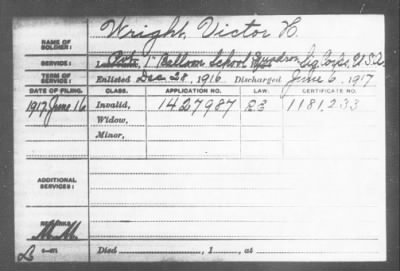 NAME OF SOLDIER: Wright, Victor H.
SERVICE: Pvt. 1" Balloon School Squadron, Sig. Corps, U.S.A.
TERM OF SERVICE: Enlisted Dec 28, 1916. Discharged June 6, 1917
DATE OF FILING. CLASS. APPLICATION NO. LAW. CERTIFICATE NO.
1917 June 16 Invalid, 1427987 1181,233
Widow,
Minor,
ADDITIONAL SERVICES:
REMARKS:
Died , 1 , at